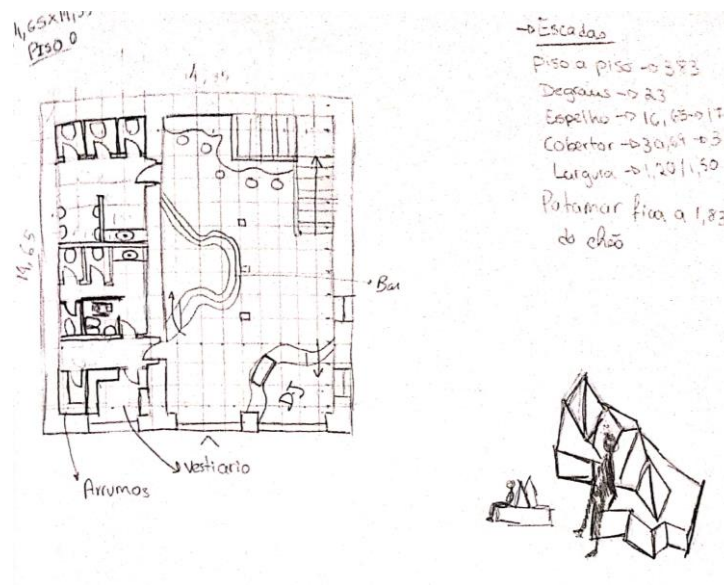 4,65x14,35
Piso 0
14,35
14,65
Bar
DJ
Vestiario
Arrumos
→Escadas
Piso a piso → 383
Degraus → 23
Espelho → 16,65→17
Cobertor → 30,69 → 3
Largura → 1,20/1,50
Patamar fica a 1,83
do chão